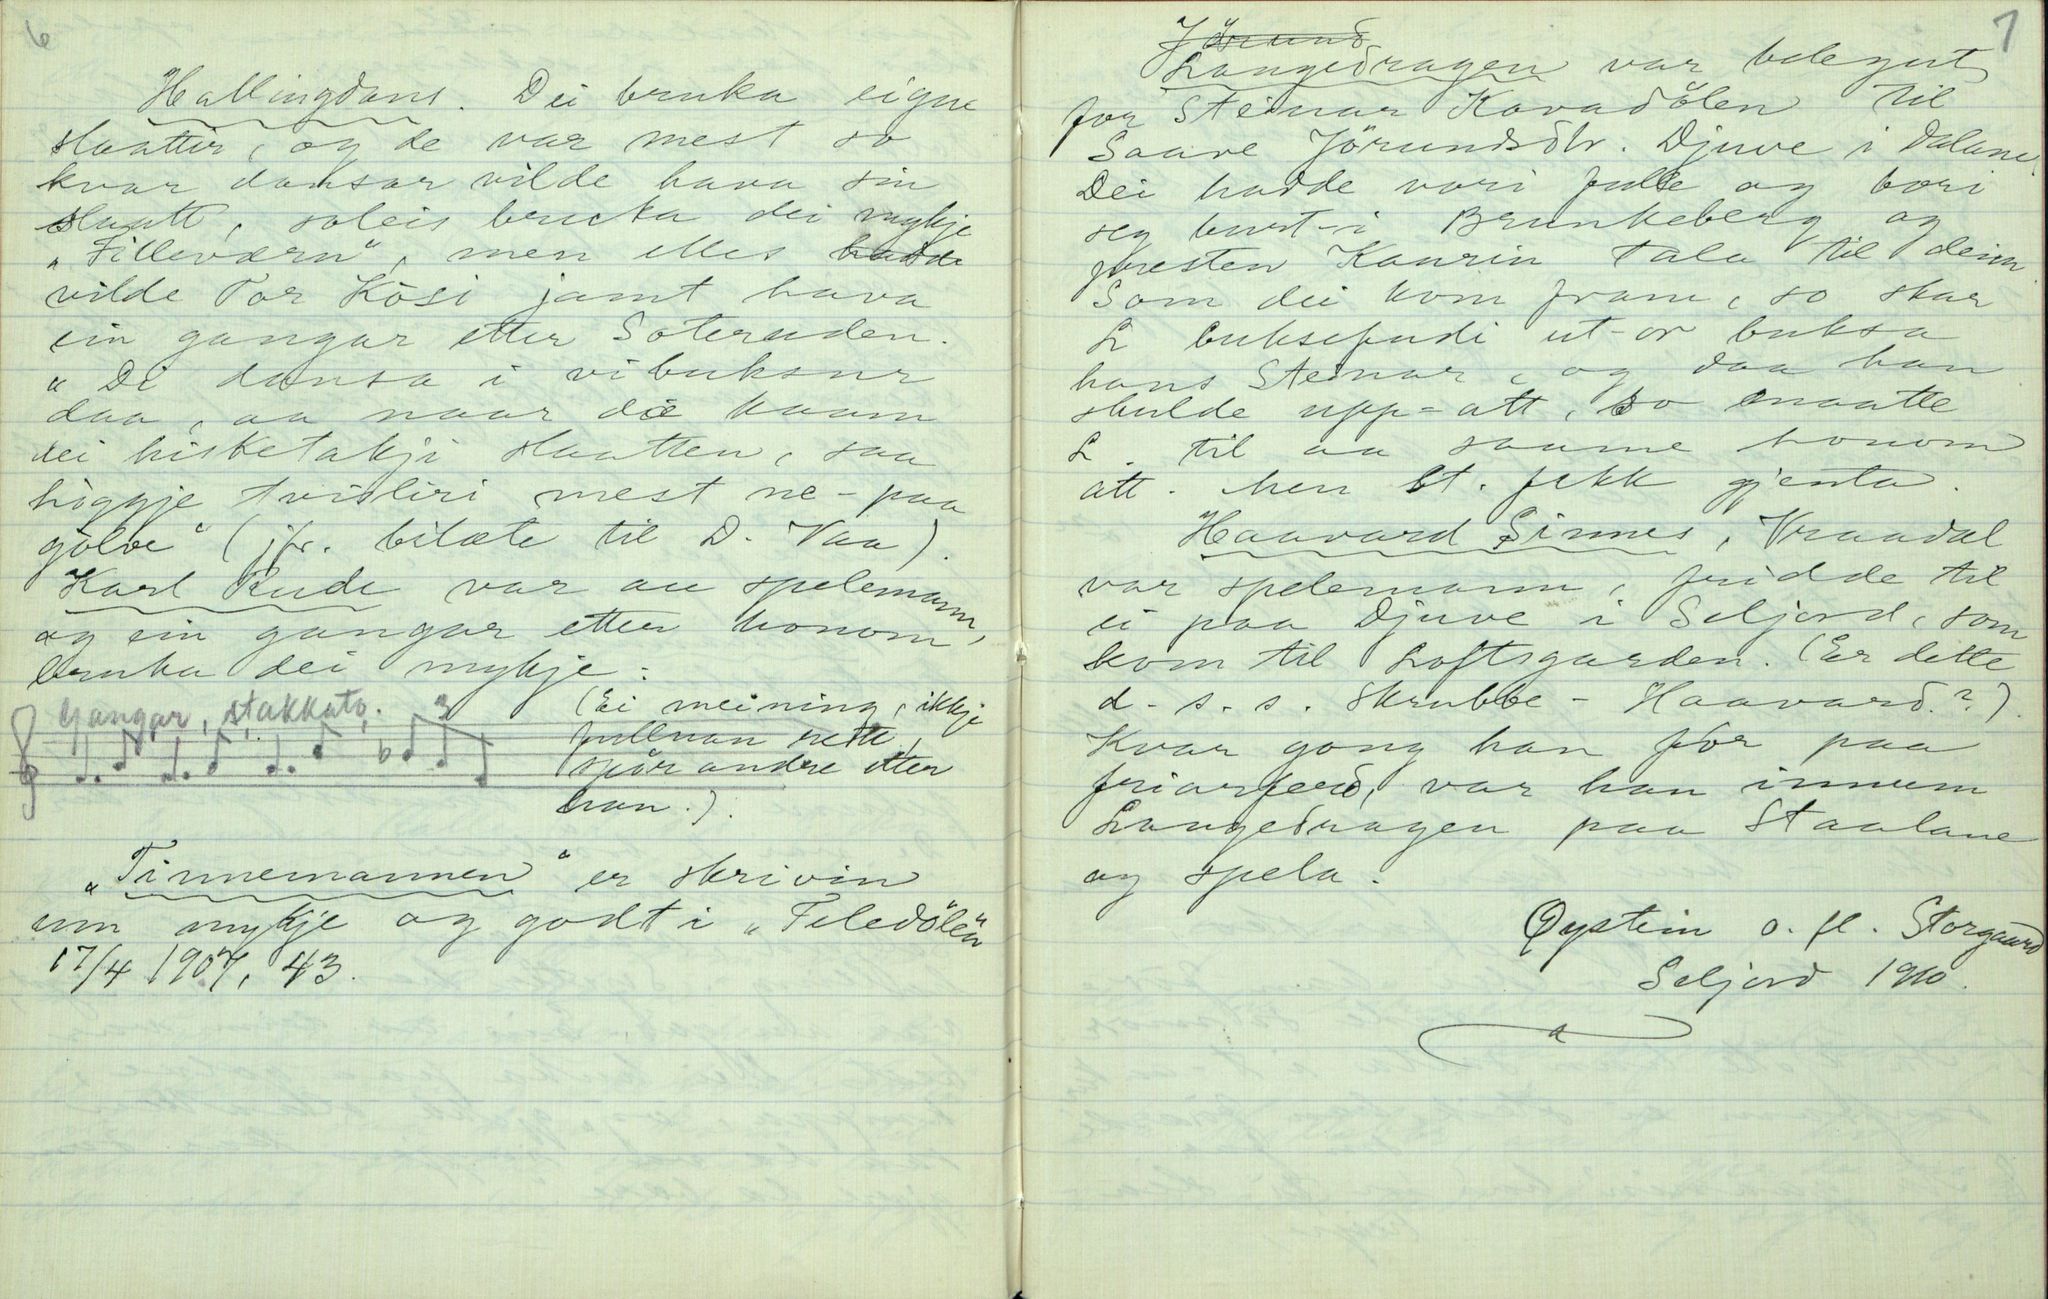 6
Hallingdans. Dei bruka eigne
slaattir, og de var mest so
kvar dansar vilde hava sin
slaatt, soleis bruka dei mykje
„Filleværn", men elles hadde
vilde Tor Kosi jamt hava
ein gangar etter Soteruden.
„Di dansa i vibuksur
daa, aa naar die kaam
dei hisketakji slaatten, saa
höggje tvisliri mest ne-paa
gölve" (jfr. bilæte til D. Vaa).
Karl Rudi var au spelemann,
og ein gangar etter honom
bruka dei mykje:
Gangar, stakkato.
3
(Ei meining, ikkje
fullvan rett,
spör andre etter
han.).
„Tinnemannen" er skrivin
um mykje og godt i „Teledölen"
17/4 1907, 43.
7
Jörund
Langedragen var belegut
for Steinar Kovadölen til
Saave Jörundsdtr. Djuve i Dalane,
Dei hadde vori fulle og bori
seg burt-i Brunkeberg og
presten Kaurin tala til deim
Som dei kom fram, so skar
L buksefudi ut-or buksa
hans Steinar, og daa han
skulde upp-att, so maatte
L. til aa saume honom
att. Men St. fekk gjenta.
Haavard Sinnes, Kraadal
var spelemann, fridde til
ei paa Djuve i Seljord, som
kom til Loftsgarden. (Er dette
d. s. s. Skrubbe-Haavard.?).
Kvar gong han för paa
friarferd, var han innum
Langedragen paa Staalane
og spela.
Øystein o. fl. Storgaard
Seljord 1910.